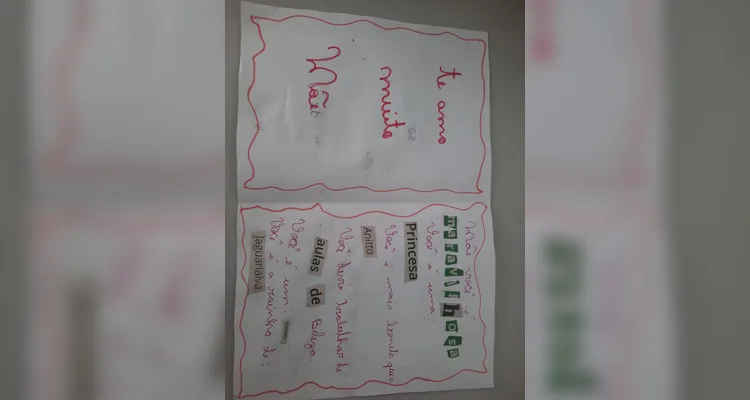 te amo
muito
Mãe
Mãe você é:
maravilhosa
Você é uma:
Princesa
Você é mais bonita que
Anitta
Você devia trabalhar de:
aulas de Beleza.
Você é um:
Você é a rainha de:
Jaguariaíva